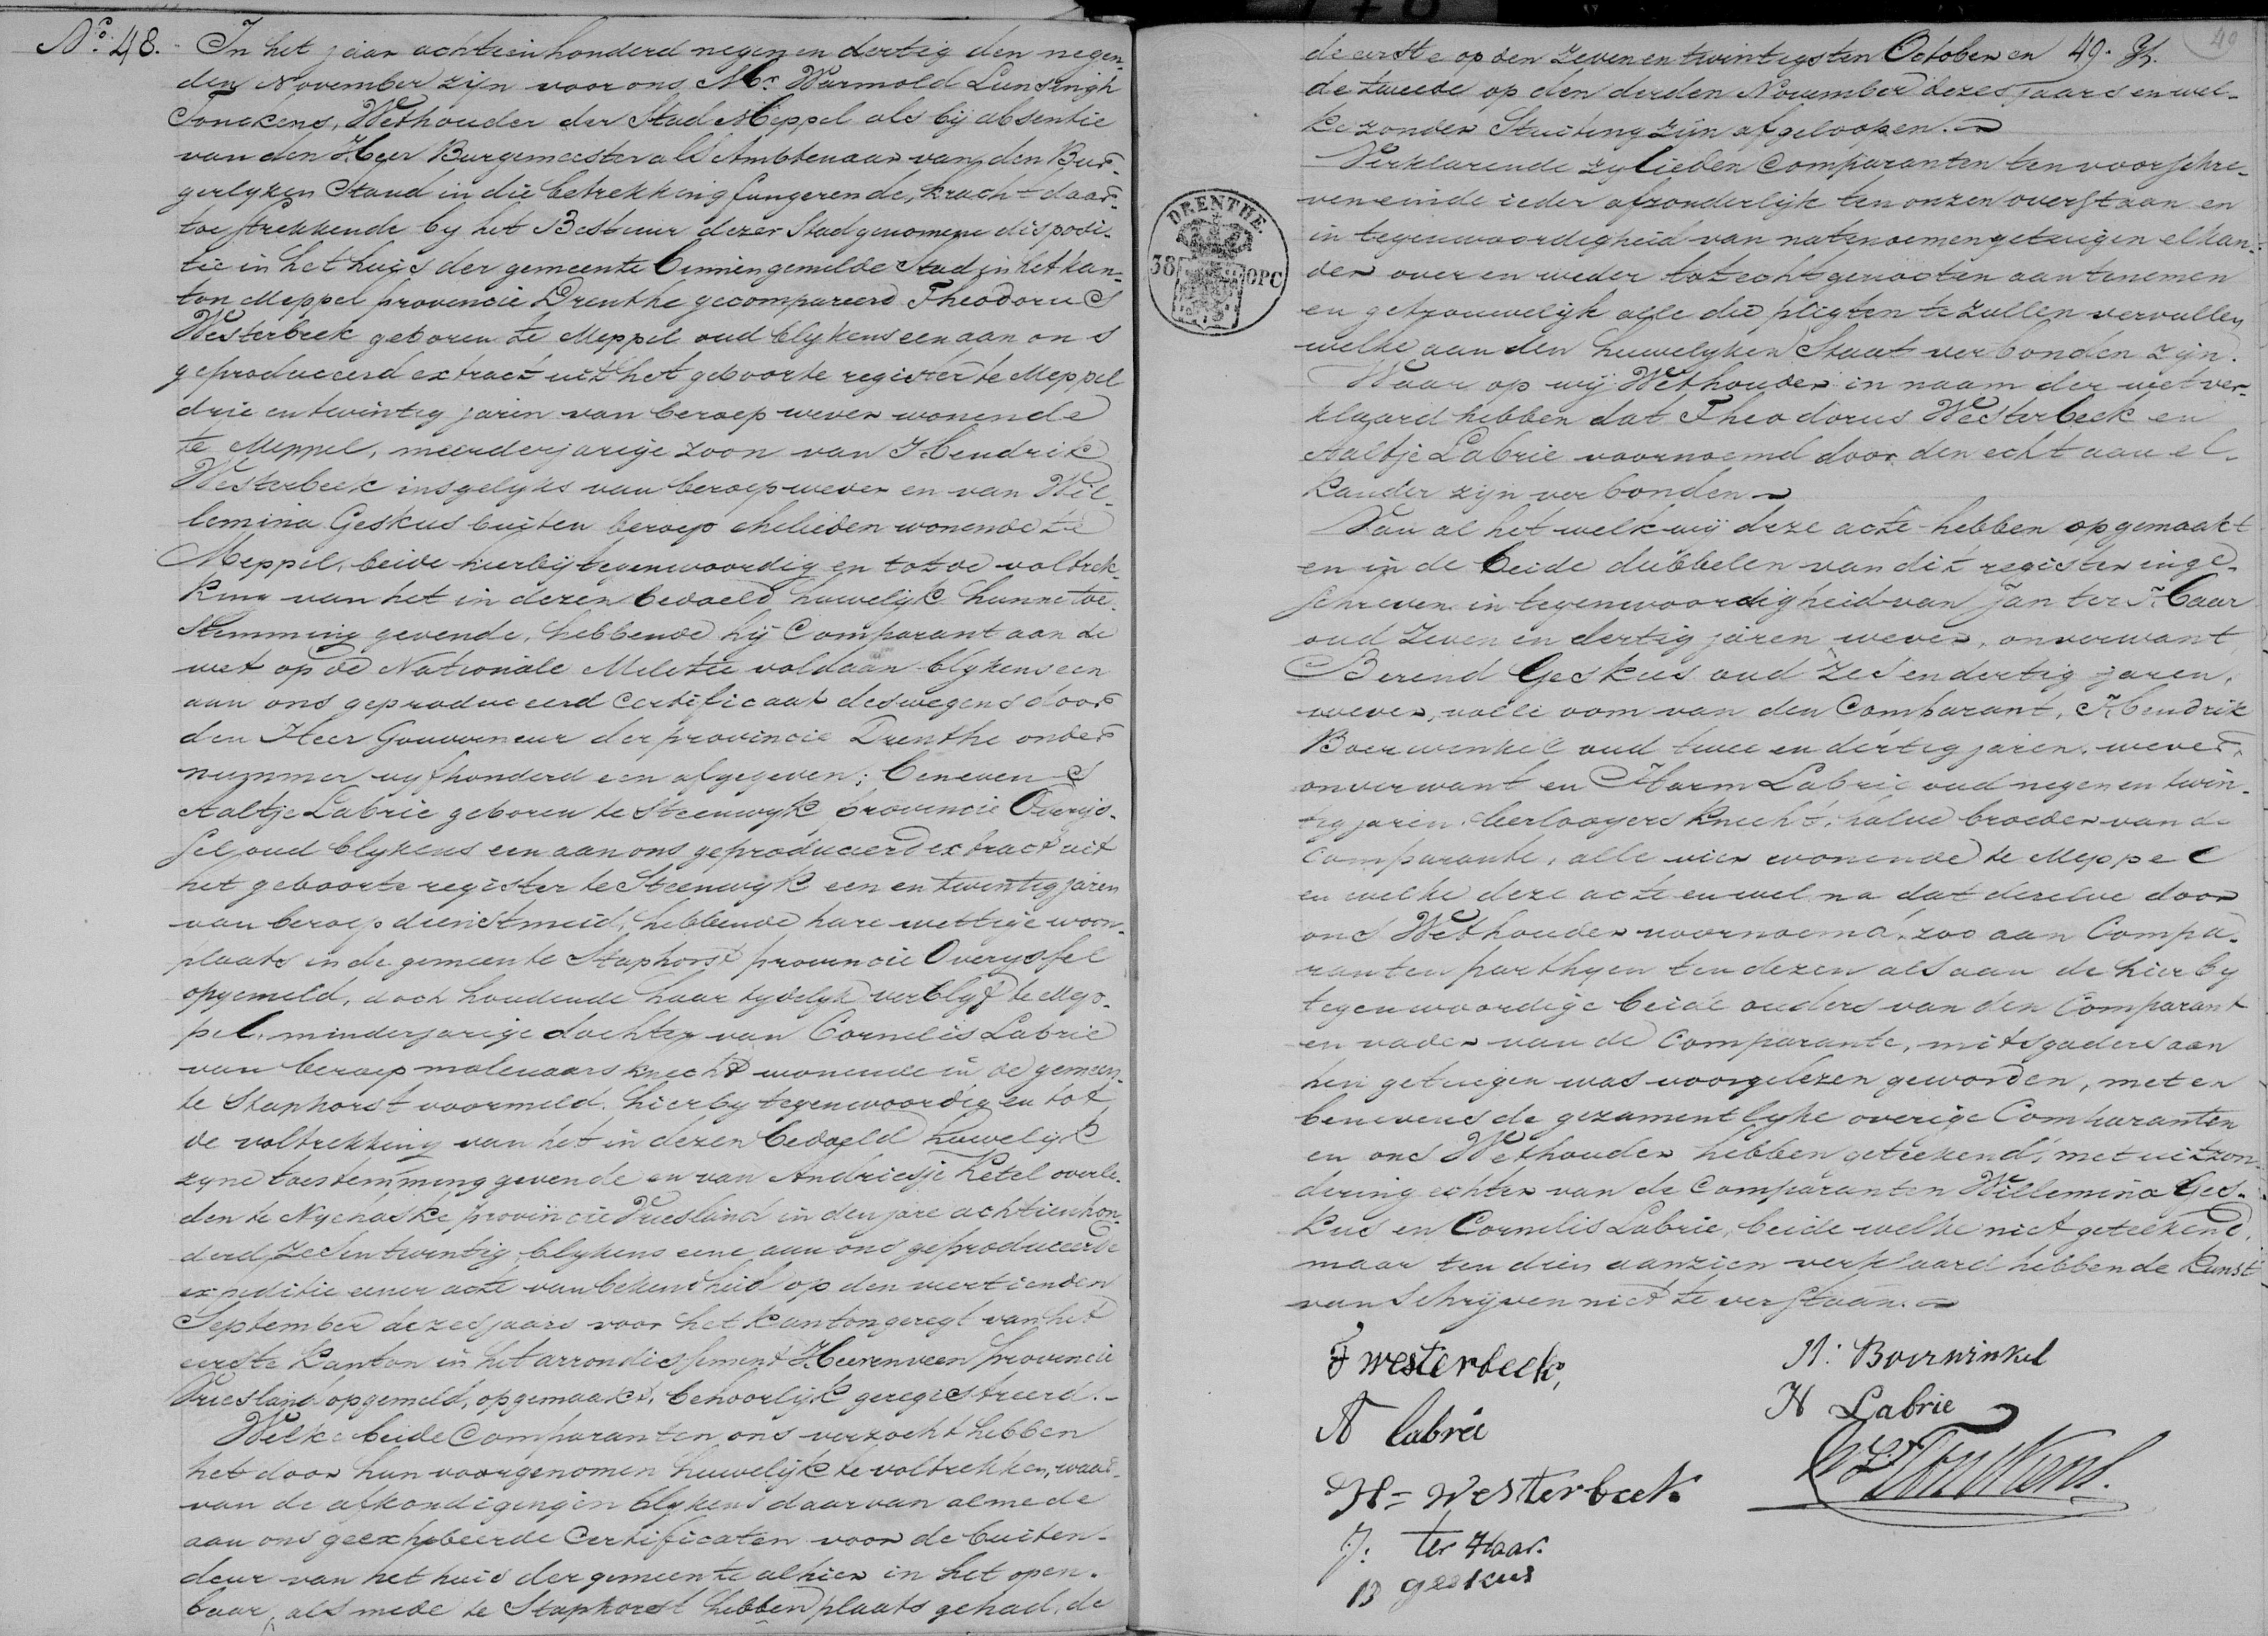 No. 48. In het jaar achttienhonderd negen en dertig den negen-
den November zijn voor ons Mr. Warmold Lunsingh
Tonckens, Wethouder der Stad Meppel als bij absentie
van den Heer Burgemeester als Ambtenaar van den Bur-
gerlyken Stand in die betrekking fungerende, kracht daar-
toe strekkende by het Bestuur dezer Stad genomene disposi-
tie in het huis der gemeente binnen gemelde Stad in het kan-
ton Meppel provincie Drenthe gecompareerd Theodorus
Westerbeek geboren te Meppel oud blykens een aan ons
geproduceerd extract uit het geboorte register te Meppel
drie en twintig jaren van beroep wever wonende
te Meppel, meerderjarige zoon van Hendrik
Westerbeek insgelyks van beroep wever en van Wil-
lemina Geskus buiten beroep ehelieden wonende te
Meppel, beide hierbij tegenwoordig en tot de voltrek-
king van het in dezen bedoeld huwelijk hunne toe-
stemming gevende, hebbende hij Comparant aan de
wet op de Nationale Militie voldaan blykens een
aan ons geproduceerd certificaat deswegens door
den Heer Gouverneur der provincie Drenthe onder
nummer vyfhonderd een afgegeven; benevens
Aaltje Labrie geboren te Steenwyk provincie Overijs-
sel oud blykens een aan ons geproduceerd extract uit
het geboorte register te Steenwyk een en twintig jaren
van beroep dienstmeid, hebbende hare wettige woon-
plaats in de gemeente Staphorst provincie Overyssel
opgemeld, doch houdende haar tydelyk verblyf te Mep-
pel, minderjarige dochter van Cornelis Labrie
van beroep molenaars knecht wonende in de gemeen-
te Staphorst voormeld, hierby tegenwoordig en tot
de voltrekking van het in dezen bedoeld huwelijk
zyne toestemming gevende en van Andriesje Ketel overle-
den te Nyehaske provincie Vriesland in den jare achttienhon-
derd zes en twintig, blykens eene aan ons geproduceerde
expeditie eener acte van bekendheid op den veertienden
September dezes jaars voor het kantongeregt van het
eerste Kanton in het arrondissement Heerenveen provincie
Vriesland opgemeld, opgemaakt, behoorlijk geregistreerd.-
Welke beide Comparanten ons verzocht hebben
het door hun voorgenomen huwelijk te voltrekken, waar-
van de afkondigingen blykens daarvan almede
aan ons geexhibeerde Certificaten voor de buiten-
deur van het huis der gemeente alhier in het open-
baar, als mede te Staphorst hebben plaats gehad, de
49
de eerste op den zeven en twintigsten October en 49.
de tweede op den derden November dezes jaars en wel-
ke zonder Stuiting zijn afgeloopen.
Verklarende zylieden Comparanten ten voorschre-
ven einde ieder afzonderlijk ten onzen overstaan en
in tegenwoordigheid van natenoemen getuigen elkan-
der over en weder tot echtgenooten aantenemen
en getrouwelijk alle die pligten te zullen vervullen
welke aan den huwelyken Staat verbonden zijn.
Waar op wij Wethouder in naam der wet ver-
klaard hebben dat Theodorus Westerbeek en
Aaltje Labrie voornoemd door den echt aan el-
kander zijn verbonden
Van al het welk wij deze acte hebben opgemaakt
en in de beide dubbelen van dit register inge-
schreven in tegenwoordigheid van Jan ter Haar
oud zeven en dertig jaren wever, onverwant
Berend Geskus oud zes en dertig jaren,
wever, volle oom van den Comparant, Hendrik
Boerwinkel oud twee en dertig jaren, wever,
onverwant en Harm Labrie oud negen en twin-
tig jaren, leerlooyers knecht, halve broeder van de
Comparante, alle vier wonende te Meppel
en welke deze acte en wel na dat dezelve door
ons Wethouder voornoemd, zoo aan Compa-
ranten parthyen ten dezen als aan de hier by
tegenwoordige beide ouders van den Comparant
en vader van de Comparante, mitsgaders aan
hen getuigen was voorgelezen geworden, met en
benevens de gezamentlyke overige Comparanten
en ons Wethouder hebben geteekend, met uitzon-
dering echter van de Comparanten Willemina Ges-
kus en Cornelis Labrie, beide welke niet geteekend,
maar ten dien aanzien verklaard hebbende kunst
van Schrijven niet te verstaan.
DRENTHE.
38 OPC
T westerbeek,
A labrie
H= Westerbeek
J: ter Haar.
B geskus
H: Boerwinkel
H Labrie
Tonckens.